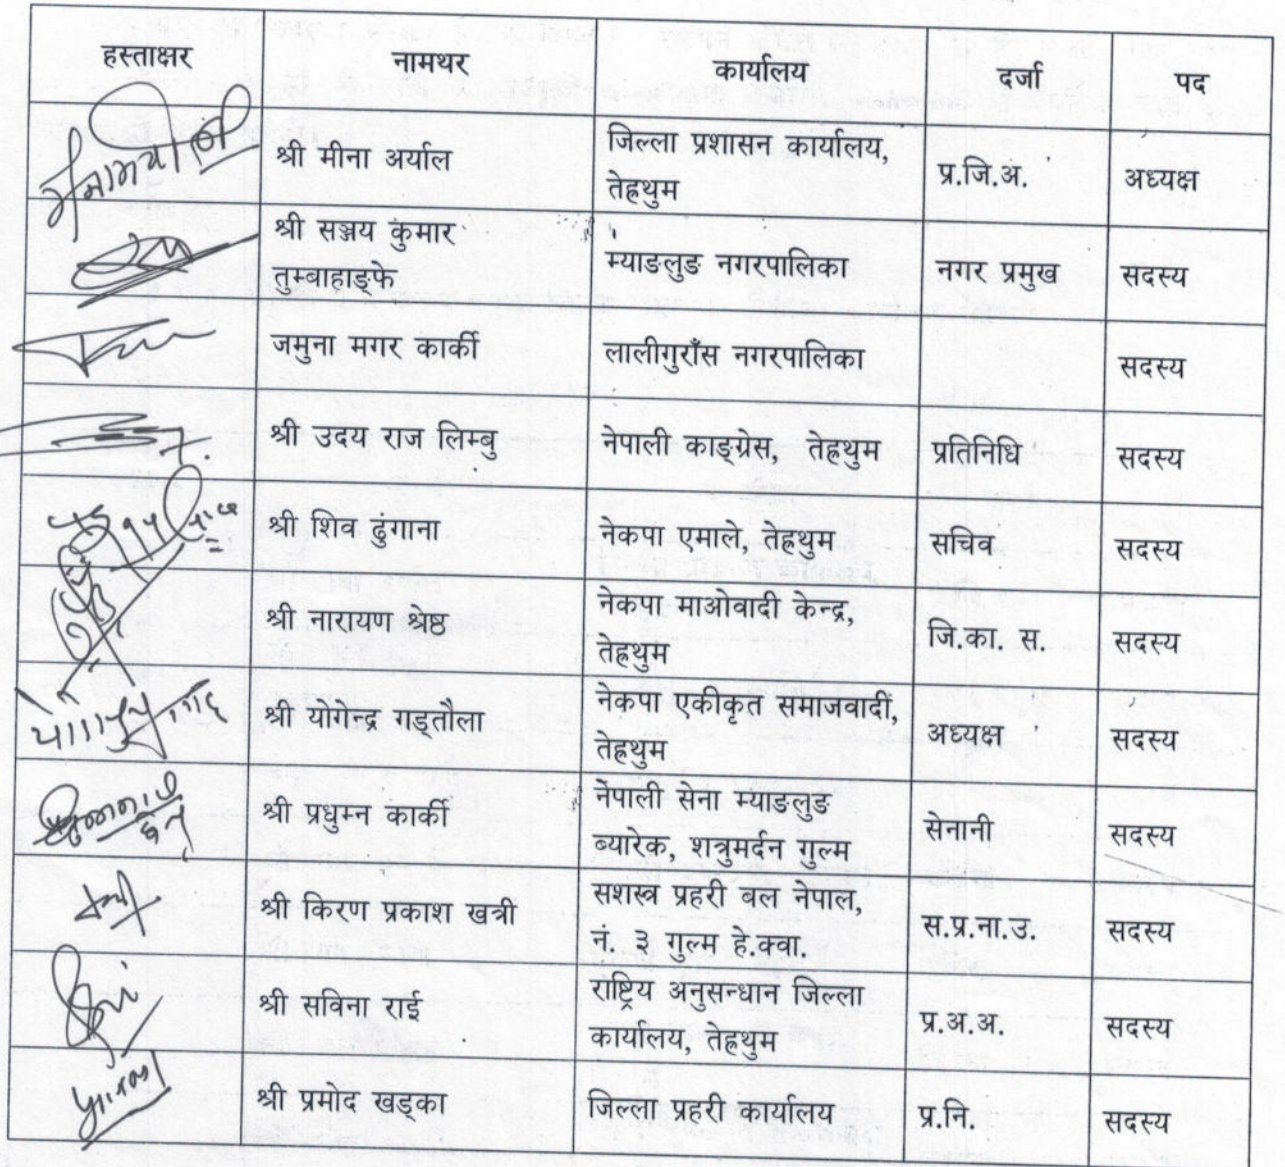 हस्ताक्षर नामथर कार्यालय दर्जा पद
श्री मीना अर्याल जिल्ला प्रशासन कार्यालय, तेह्रथुम प्र.जि.अ. अध्यक्ष
श्री सञ्जय कुंमार तुम्बाहाङ्फे म्याङलुङ नगरपालिका नगर प्रमुख सदस्य
जमुना मगर कार्की लालीगुराँस नगरपालिका सदस्य
श्री उदय राज लिम्बु नेपाली काङ्ग्रेस, तेह्रथुम प्रतिनिधि सदस्य
श्री शिव ढुंगाना नेकपा एमाले, तेह्रथुम सचिव सदस्य
श्री नारायण श्रेष्ठ नेकपा माओवादी केन्द्र, तेह्रथुम जि.का. स. सदस्य
श्री योगेन्द्र गड्तौला नेकपा एकीकृत समाजवादी, तेह्रथुम अध्यक्ष सदस्य
श्री प्रधुम्न कार्की नेपाली सेना म्याङलुङ ब्यारेक, शत्रुमर्दन गुल्म सेनानी सदस्य
श्री किरण प्रकाश खत्री सशस्त्र प्रहरी बल नेपाल, नं. ३ गुल्म हे.क्वा. स.प्र.ना.उ. सदस्य
श्री सविना राई राष्ट्रिय अनुसन्धान जिल्ला कार्यालय, तेह्रथुम प्र.अ.अ. सदस्य
श्री प्रमोद खड्का जिल्ला प्रहरी कार्यालय प्र.नि. सदस्य